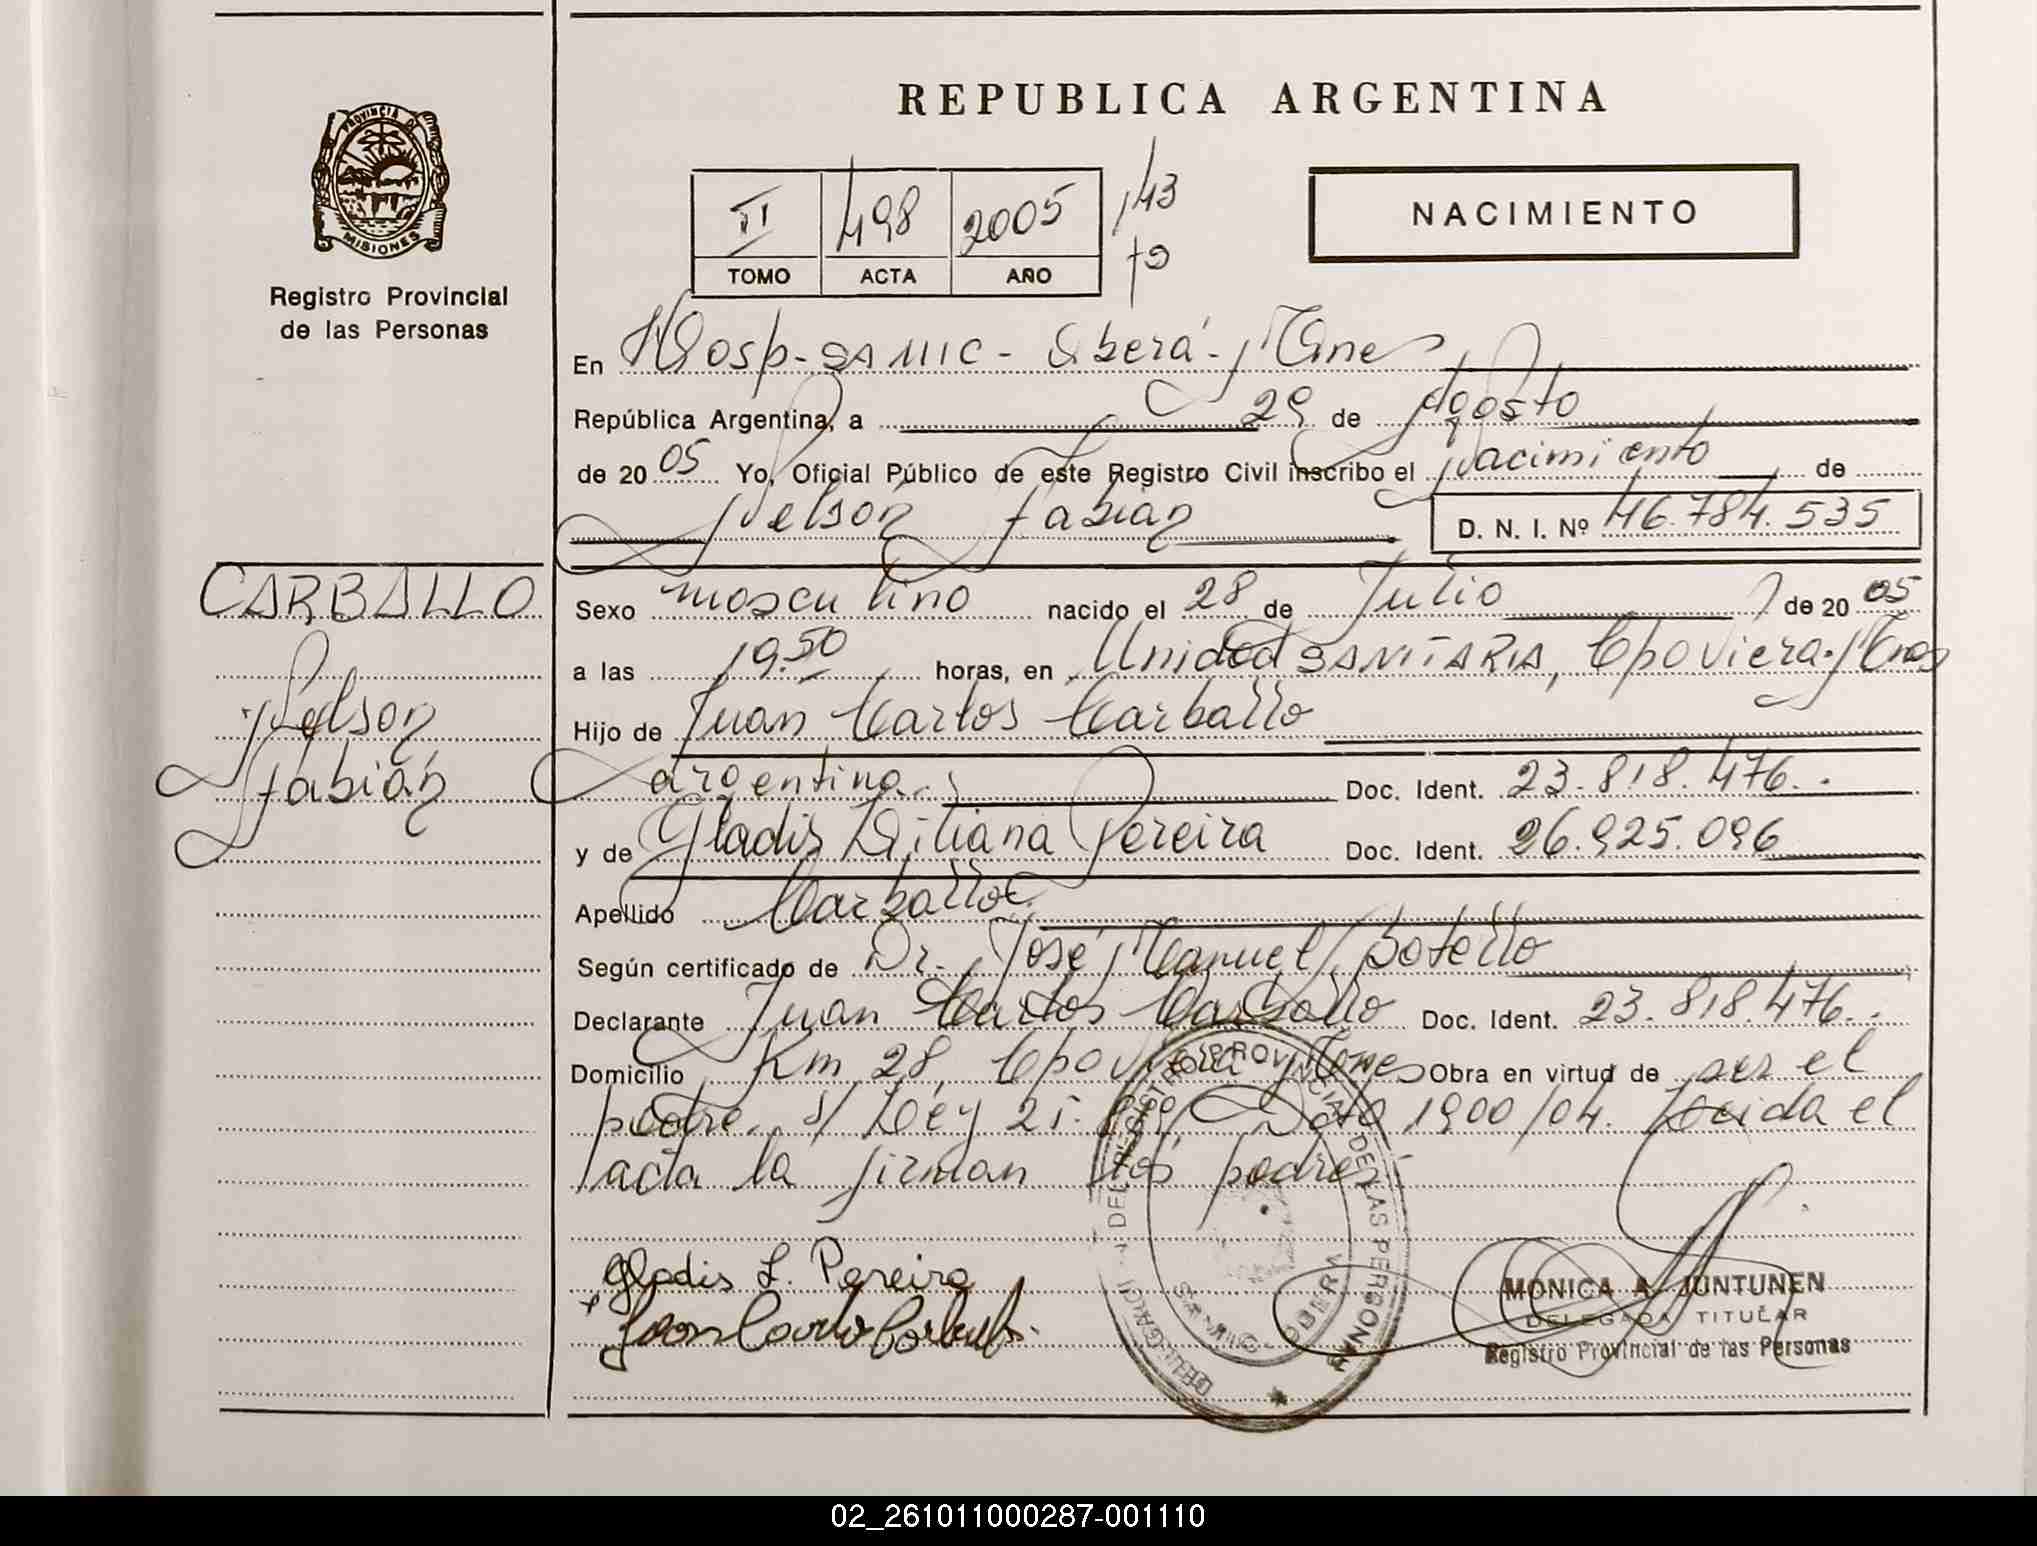 REPUBLICA ARGENTINA
PROVINCIA DE
MISIONES
Registro Provincial
de las Personas
II 498 2005
TOMO ACTA AÑO
143
NACIMIENTO
En Hosp-SAMIC- Oberá-Mnes
República Argentina, a 29 de Agosto
de 2005 Yo, Oficial Público de este Registro Civil inscribo el Nacimiento de
Nelson Fabian D. N. I. Nº 46.784.535
CARBALLO
Nelson
Fabián
Sexo masculino nacido el 28 de Julio de 2005
a las 19.50 horas, en Unidad SANITARIA, Cpo Viera-Mnes
Hijo de Juan Carlos Carballo
argentina. Doc. Ident. 23.818.476.
y de Gladis Liliana Pereira Doc. Ident. 26.925.096
Apellido Carballo
Según certificado de Dr. José Manuel Botello
Declarante Juan Carlos Carballo Doc. Ident. 23.818.476.
Domicilio Km 28, Cpo Viera Mnes Obra en virtud de ser el
padre. s/ Ley Dto 1900/04. Leida el
acta la firman los padres.
Gladis L. Pereira
Juan Carlos Carballo
REGISTRO PROVINCIAL DE LAS PERSONAS
OBERA
MONICA A. JUNTUNEN
DELEGADA TITULAR
Registro Provincial de las Personas
02_261011000287-001110